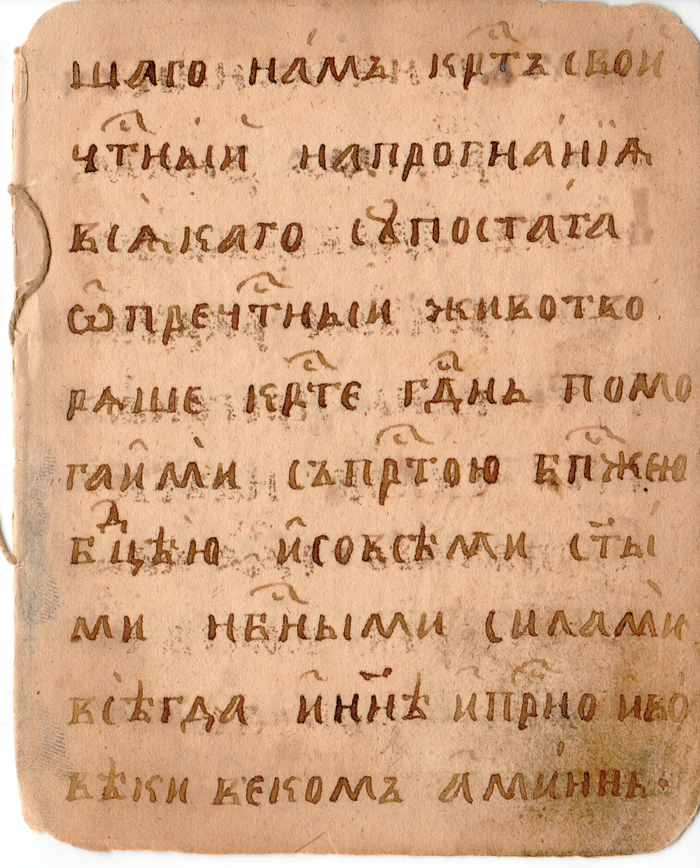 шаго на́мъ кр҇тъ сво́й
ч҇тны́й напрогна́нїѧ
всѧ̀каго сꙋпоста́та
ѽпреч҇тныи животво
рѧше кр҇те гд҇нь помо
гаи҆ мѝ съпр҇тою бп҃жею
бдцѣ́ю и҆совсѣ́ми ст҃ы́
ми нб҇ными силамѝ
всѣгда и҆нн҃ѣ и҆пр҇но и҆во
вѣки веком̾ъ а҆ми́ннь.